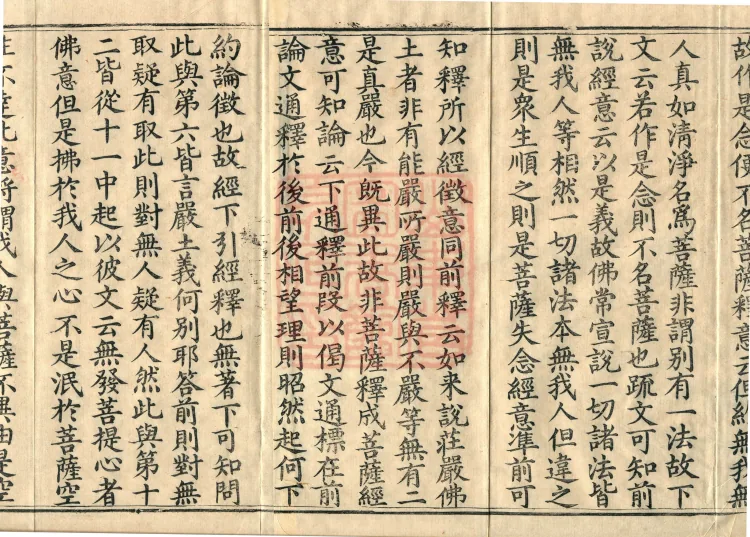 故作是念便不名菩薩釋意云但經無我無
人真如清淨名爲菩薩非謂別有一法故下
文云若作是念則不名菩薩也疏文可知前
說經意云以是義故佛常宣說一切諸法皆
無我人等相然一切諸法本無我人但違之
則是衆生順之則是菩薩失念經意準前可
知釋所以經徵意同前釋云如来說莊嚴佛
土者非有能嚴所嚴則嚴與不嚴等無有二
是真嚴也今既異此故非菩薩釋成菩薩經
意可知論云下通釋前段以偈文通標在前
論文通釋於後前後相望理則昭然起何下
約論徵也故經下引經釋也無著下可知問
此與第六皆言嚴土義何別耶答前則對無
取疑有取此則對無人疑有人然此與第十
二皆從十一中起以彼文云無發菩提心者
佛意但是拂於我人之心不是泯於菩薩空
性不達此意將謂我人與菩薩不異由是空